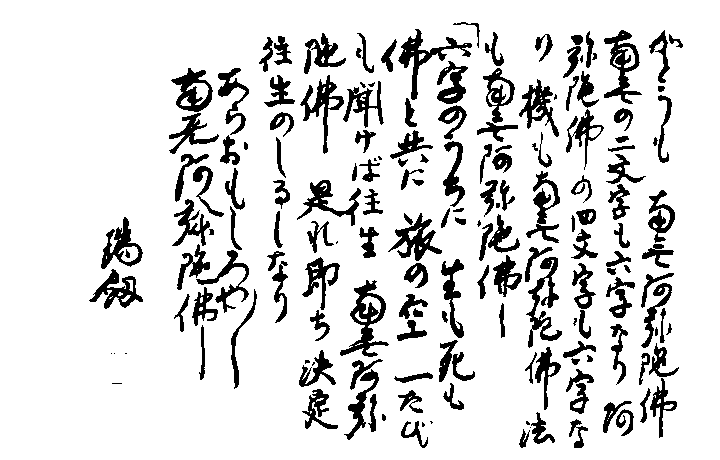 どうも 南无阿弥陀佛
南无の二文字も六字なり 阿
弥陀佛の四文字も六字な
り 機も南无阿弥陀佛 法
も南无阿弥陀佛〳〵
「六字のうちに 生も死も
佛と共に 旅の空 一たび
も聞けば往生 南无阿弥
陀佛〳〵 是れ即ち決定
往生のしるしなり
あらおもしろや〳〵
南无阿弥陀佛〳〵
瑞劔